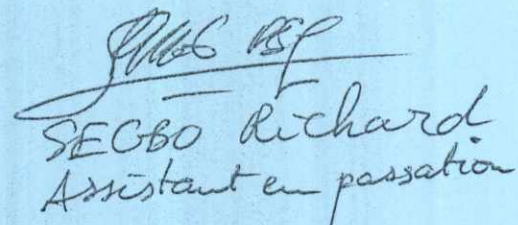 SEGBO Richard
Assistant en passation